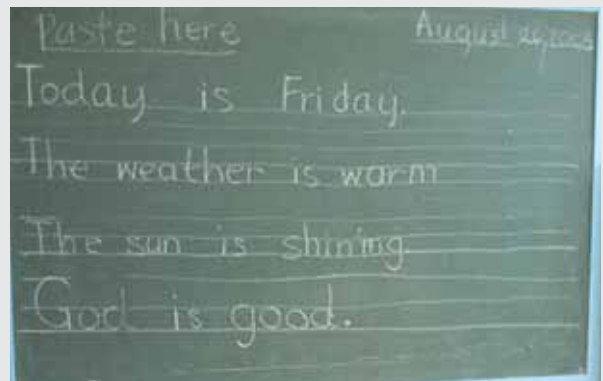 Paste here August 26, 2005
Today is Friday.
The weather is warm
The sun is shining.
God is good.